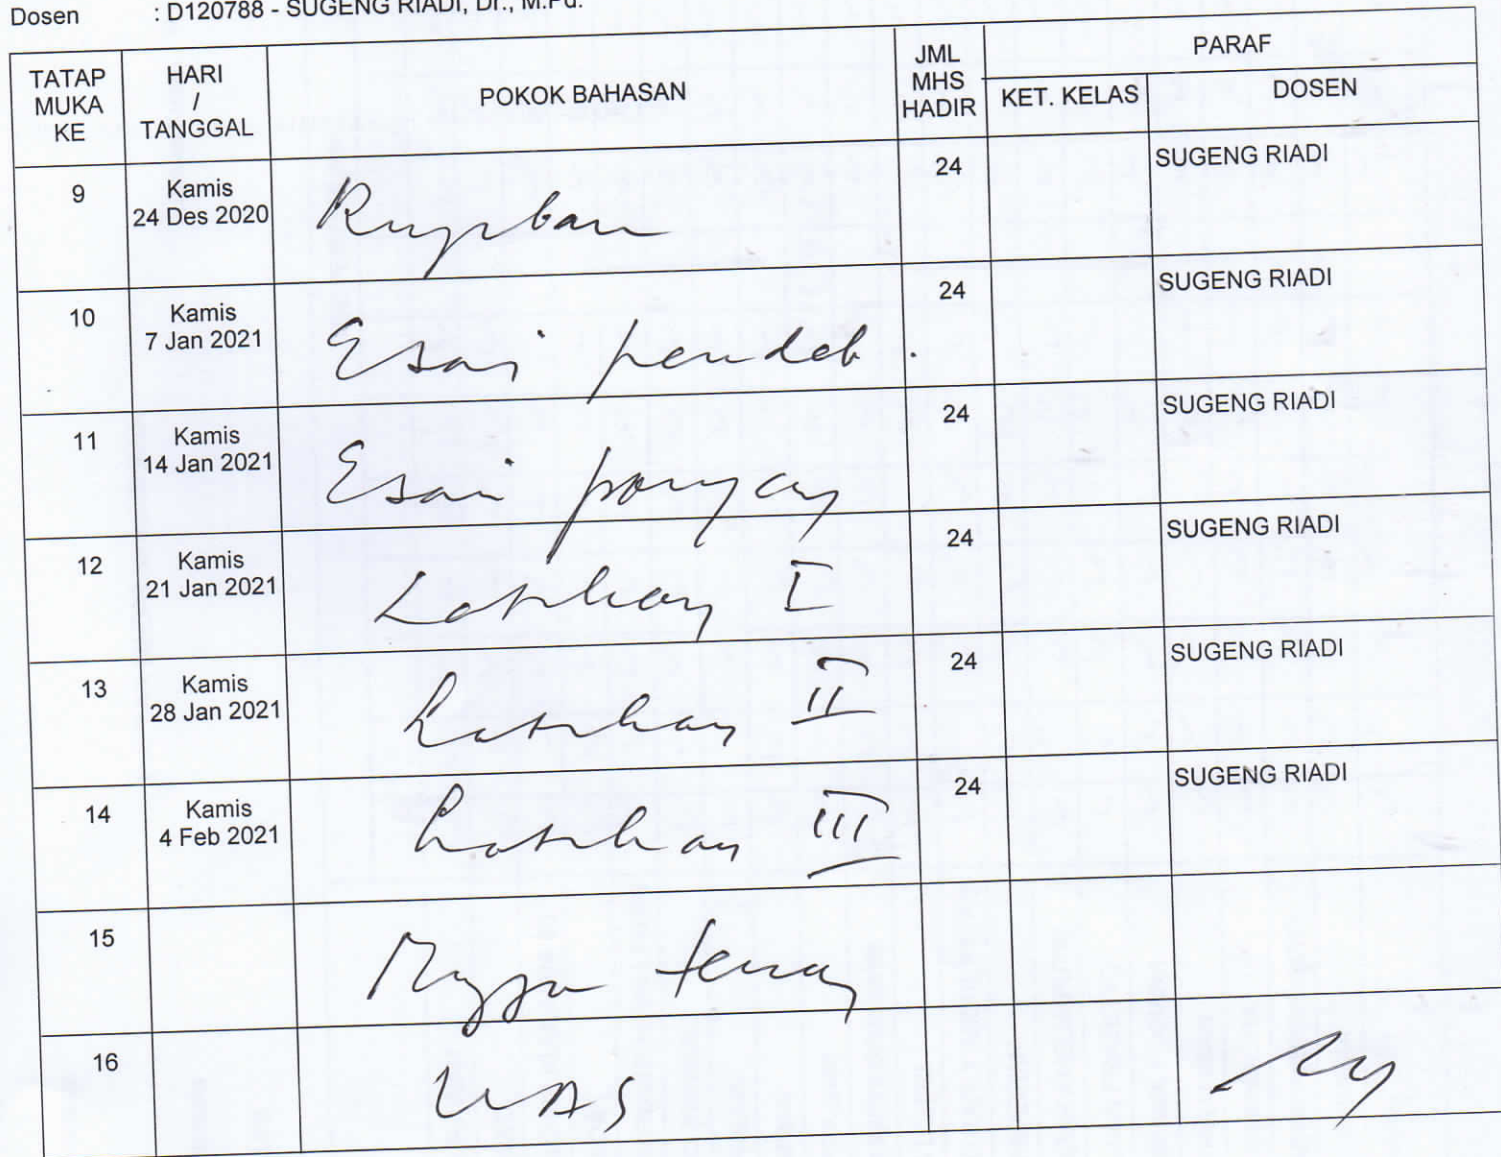 Dosen : D120788 - SUGENG RIADI, Dr., M.Pd.
TATAP MUKA KE HARI / TANGGAL POKOK BAHASAN JML MHS HADIR PARAF
KET. KELAS DOSEN
9 Kamis 24 Des 2020 24 SUGENG RIADI
10 Kamis 7 Jan 2021 Esai pendek. 24 SUGENG RIADI
11 Kamis 14 Jan 2021 Esai panjang 24 SUGENG RIADI
12 Kamis 21 Jan 2021 Latihan I 24 SUGENG RIADI
13 Kamis 28 Jan 2021 Latihan II 24 SUGENG RIADI
14 Kamis 4 Feb 2021 Latihan III 24 SUGENG RIADI
15 Minggu tenang
16 UAS